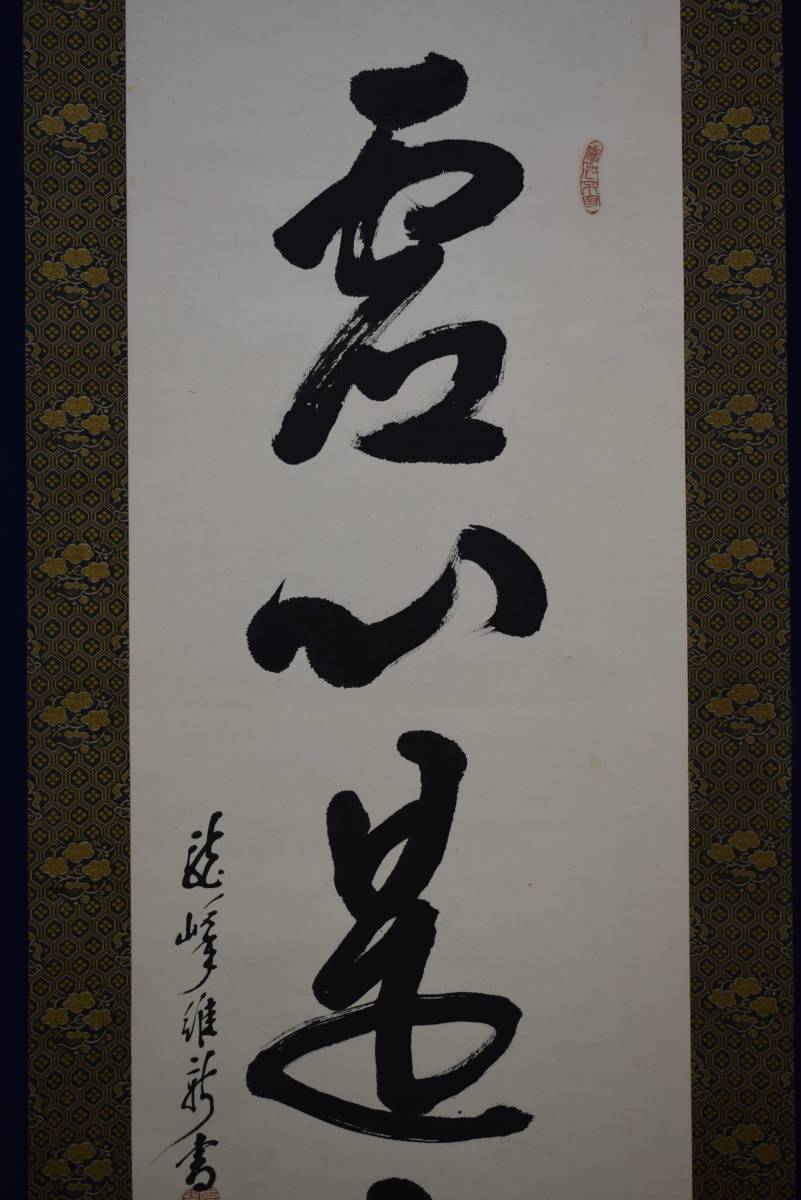 虚心是
龍峰維新書